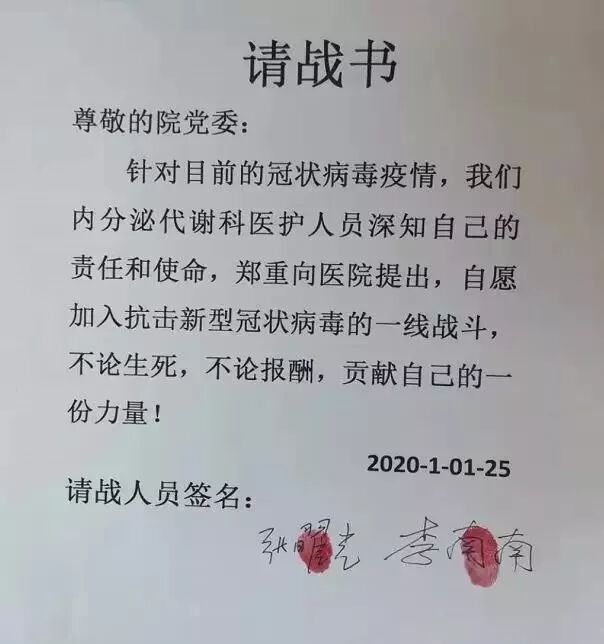 请战书
尊敬的院党委：
针对目前的冠状病毒疫情，我们
内分泌代谢科医护人员深知自己的
责任和使命，郑重向医院提出，自愿
加入抗击新型冠状病毒的一线战斗，
不论生死，不论报酬，贡献自己的一
份力量！
2020-1-01-25
请战人员签名：
张曜光 李南南